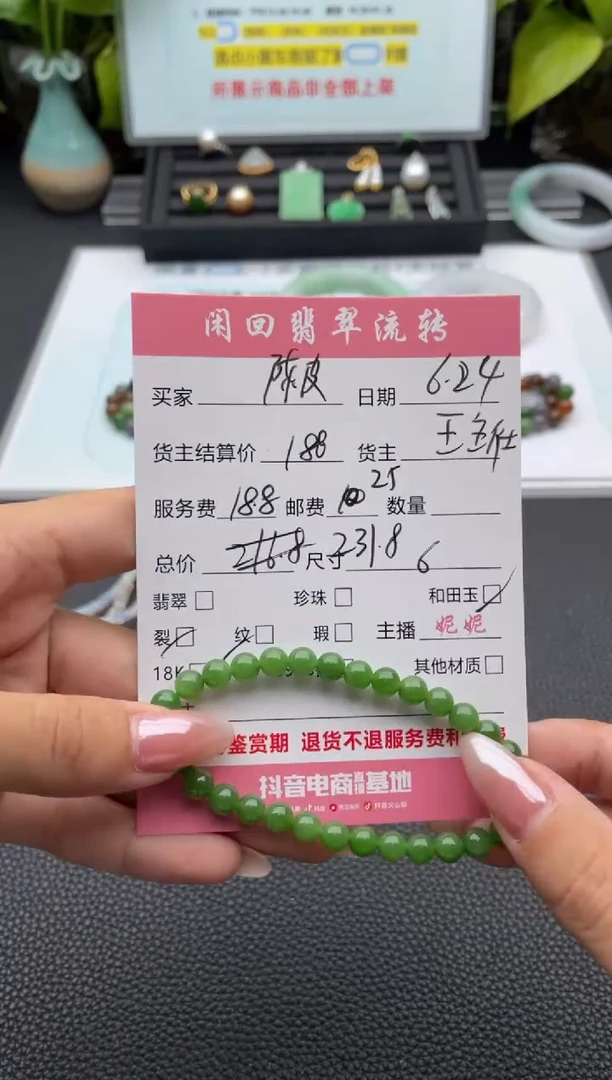 所展示商品非全部上架
闲回翡翠流转
买家 陈皮 日期 6.24
货主结算价 188 货主
服务费 18.8 邮费 10 25 数量
总价 216.8 尺寸 231.8 6
翡翠 珍珠 和田玉
裂 纹 瑕 主播 妮妮
18K 其他材质
鉴赏期 退货不退服务费和
抖音电商直播基地